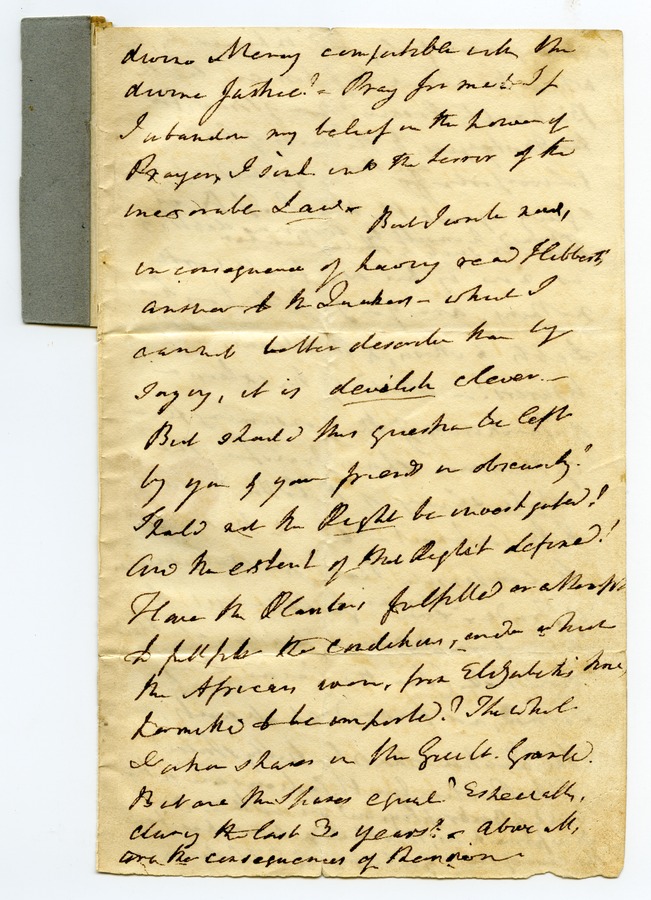 divine Mercy compatible with the
divine Justice? – Pray for me! If
I abandon my belief in the power of
Prayer, I sink into the terror of the
inexorable Law.
But I write now,
in consequence of having read Hibbert's
answer to the Quakers – which I
cannot better describe than by
saying, it is devilish clever. –
But should this question be left
by you & your friends in obscurity?
Should not the Right be investigated?
And the extent of that Right defined?
Have the Planters fulfilled or attempted
to fulfil the conditions, under which
the Africans were, from Elizabeth's time,
permitted to be imported? The whole
Nation shares in the Guilt. Grant it.
But are the Shares equal? Especially,
during the last 30 years? – above all,
are the consequences of